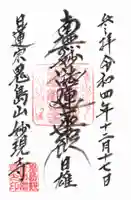 奉拝 令和四年十二月十七日
南無妙法蓮華経 日雄
日蓮宗鬼島山妙現寺